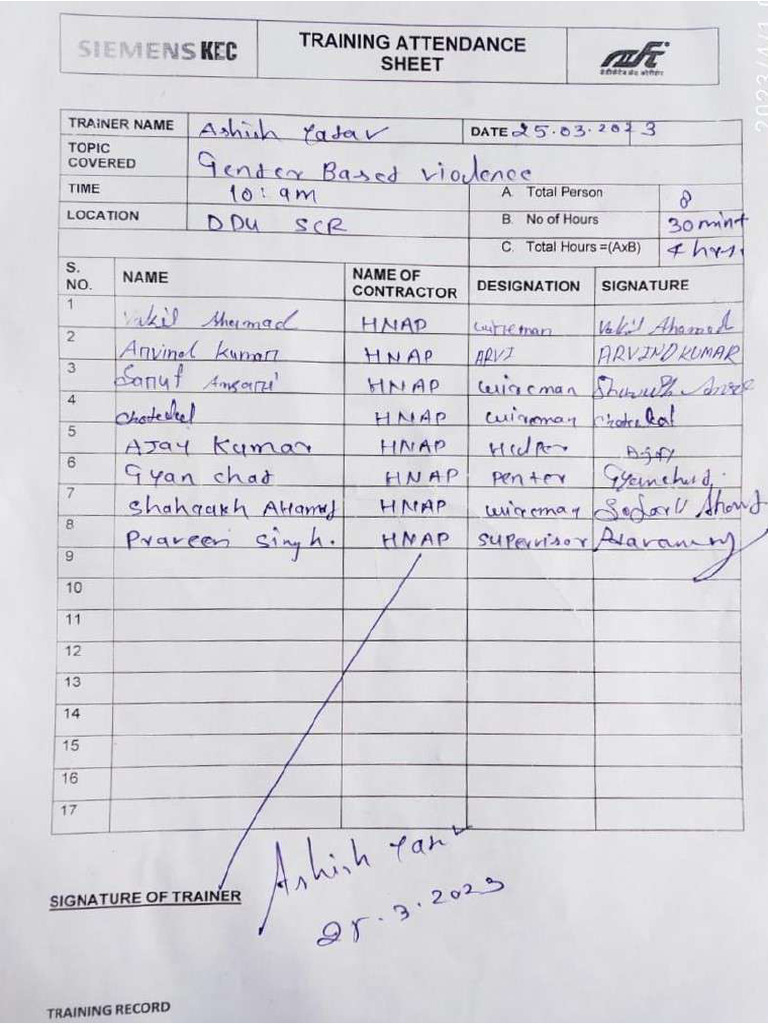 SIEMENS KEC TRAINING ATTENDANCE SHEET
डेडीकेटेड फ्रेट कोरीडोर
2023/4/1
TRAINER NAME Ashish Yadav DATE 25.03.2023
TOPIC COVERED Gender Based violence
TIME 10:am A. Total Person 8
LOCATION DDU SCR B. No of Hours 30 mint
C. Total Hours =(AxB) 4 hrs.
S. NO. NAME NAME OF CONTRACTOR DESIGNATION SIGNATURE
1 Vakil Ahemad HNAP wireman Vakil Ahamad
2 Arvind Kumar HNAP ARVI ARVIND KUMAR
3 Ansari HNAP wireman
4 HNAP wireman
5 AJay Kumar HNAP Helper Ajay
6 Gyan chad HNAP Penter Gyanchad.
7 Shahqakh AHamad HNAP wireman
8 Praveen Singh. HNAP Supervisor
9
10
11
12
13
14
15
16
17
SIGNATURE OF TRAINER Ashish Yadav
25.3.2023
TRAINING RECORD